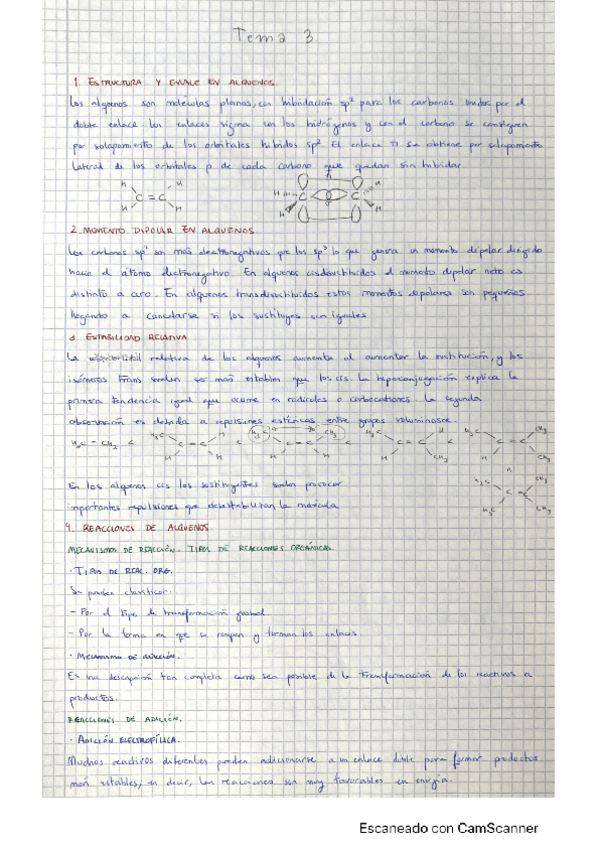 Tema 3
1. ESTRUCTURA Y ENLACE EN ALQUENOS.
Los alquenos son moléculas planas, con hibridación sp² para los carbonos unidos por el
doble enlace los enlaces sigma con los hidrógenos y con el carbono se consiguen
por solapamiento de los orbitales híbridos sp². El enlace π se obtiene por solapamiento
lateral de los orbitales p de cada carbono que quedan sin hibridar.
H H C = C H H
H C C H H
2. MOMENTO DIPOLAR EN ALQUENOS
Los carbonos sp² son más electronegativos que los sp³ lo que genera un momento dipolar dirigido
hacia el átomo electronegativo. En alquenos cisdisustituidos el momento dipolar neto es
distinto a cero. En alquenos transdisustituidos estos momentos dipolares son pequeños
llegando a cancelarse si los sustituyes son iguales
ESTABILIDAD RELATIVA
La relativa de los alquenos aumenta al aumentar la sustitución, y los
isómeros trans suelen ser más estables que los cis. La hiperconjugación explica la
primera tendencia igual que ocurre en radicales o carbocationes. La segunda
observación es debida a repulsiones estéricas entre grupos voluminosos.
H₂C = CH₂ < H₃C C = C H H < H₃C CH₃ C = C H H < H₃C C = C H H CH₃ < H₃C C = C CH₃ H CH₃
H₃C C = CH₃ CH₃
En los alquenos cis los sustituyentes suelen provocar
importantes repulsiones que desestabilizan la molécula
4. REACCIONES DE ALQUENOS
MECANISMOS DE REACCIÓN. TIPOS DE REACCIONES ORGÁNICAS.
· TIPOS DE REAC. ORG.
Se pueden clasificar:
- Por el tipo de transformación global
- Por la forma en que se rompen y forman los enlaces
· MECANISMO DE REACCIÓN.
Es una descripción tan completa como sea posible de la transformación de los reactivos a
productos.
REACCIONES DE ADICIÓN.
· ADICIÓN ELECTROFÍLICA.
Muchos reactivos diferentes pueden adicionarse a un enlace doble para formar productos
más estables, es decir, las reacciones son muy favorables en energía.
Escaneado con CamScanner